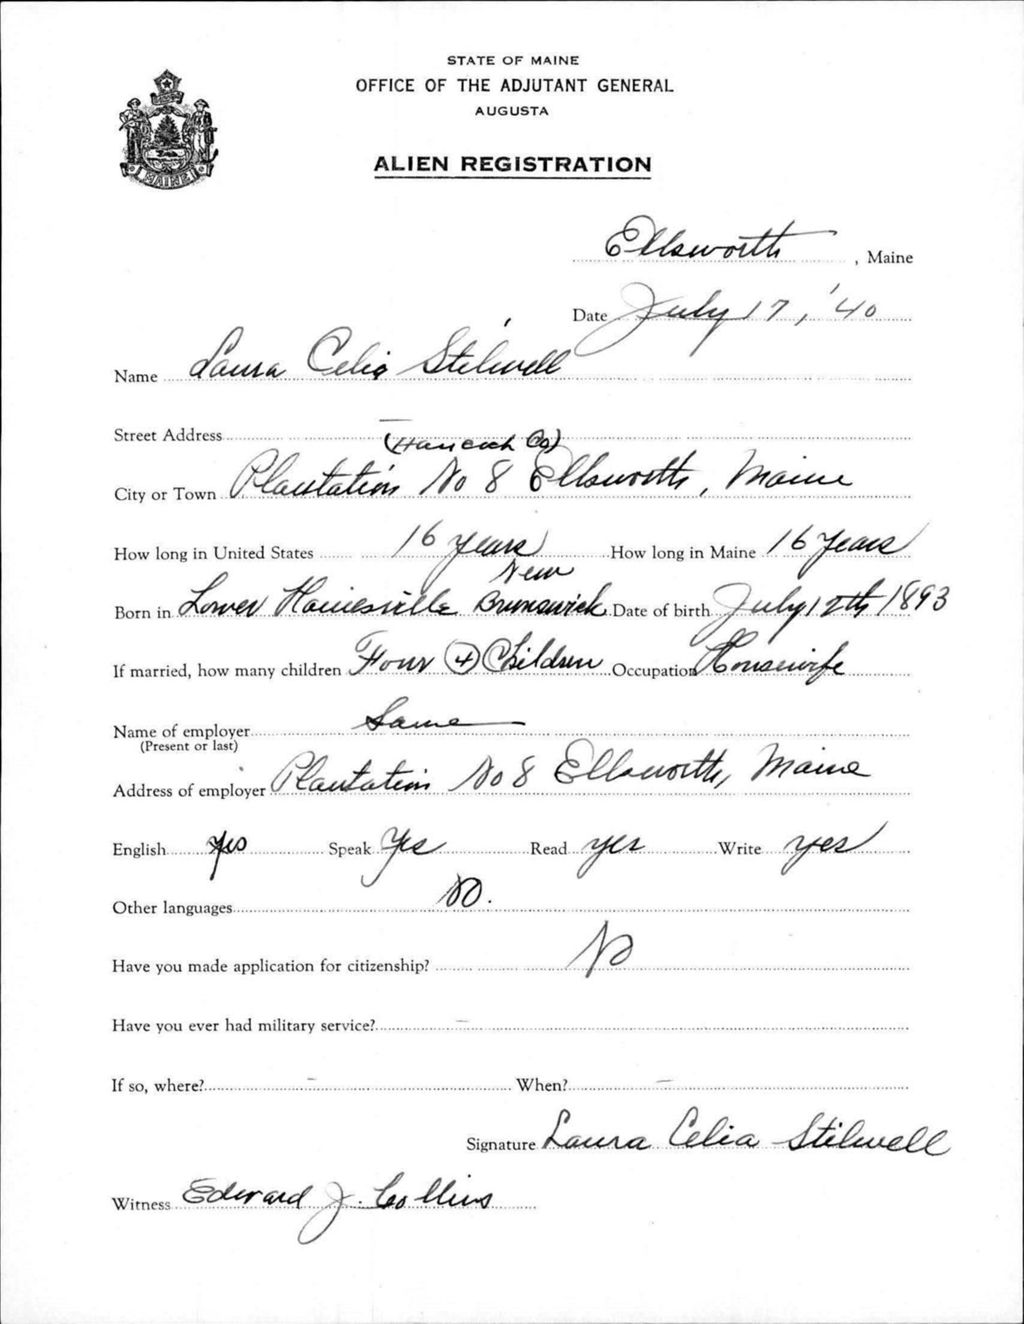 STATE OF MAINE
OFFICE OF THE ADJUTANT GENERAL
AUGUSTA
MAINE
ALIEN REGISTRATION
Ellsworth, Maine
Date July 17, '40
Name Laura Celia Stilwell
Street Address —
(Hancock Co)
City or Town Plantation No 8 Ellsworth, Maine
How long in United States 16 years How long in Maine 16 years
New
Born in Lower Hainesville Brunswick Date of birth July 12th 1893
If married, how many children Four (4) Children Occupation Housewife
Name of employer Same
(Present or last)
Address of employer Plantation No 8 Ellsworth, Maine
English yes Speak Yes Read yes Write yes
Other languages No.
Have you made application for citizenship? No
Have you ever had military service? —
If so, where? — When? —
Signature Laura Celia Stilwell
Witness Edward J. Collins